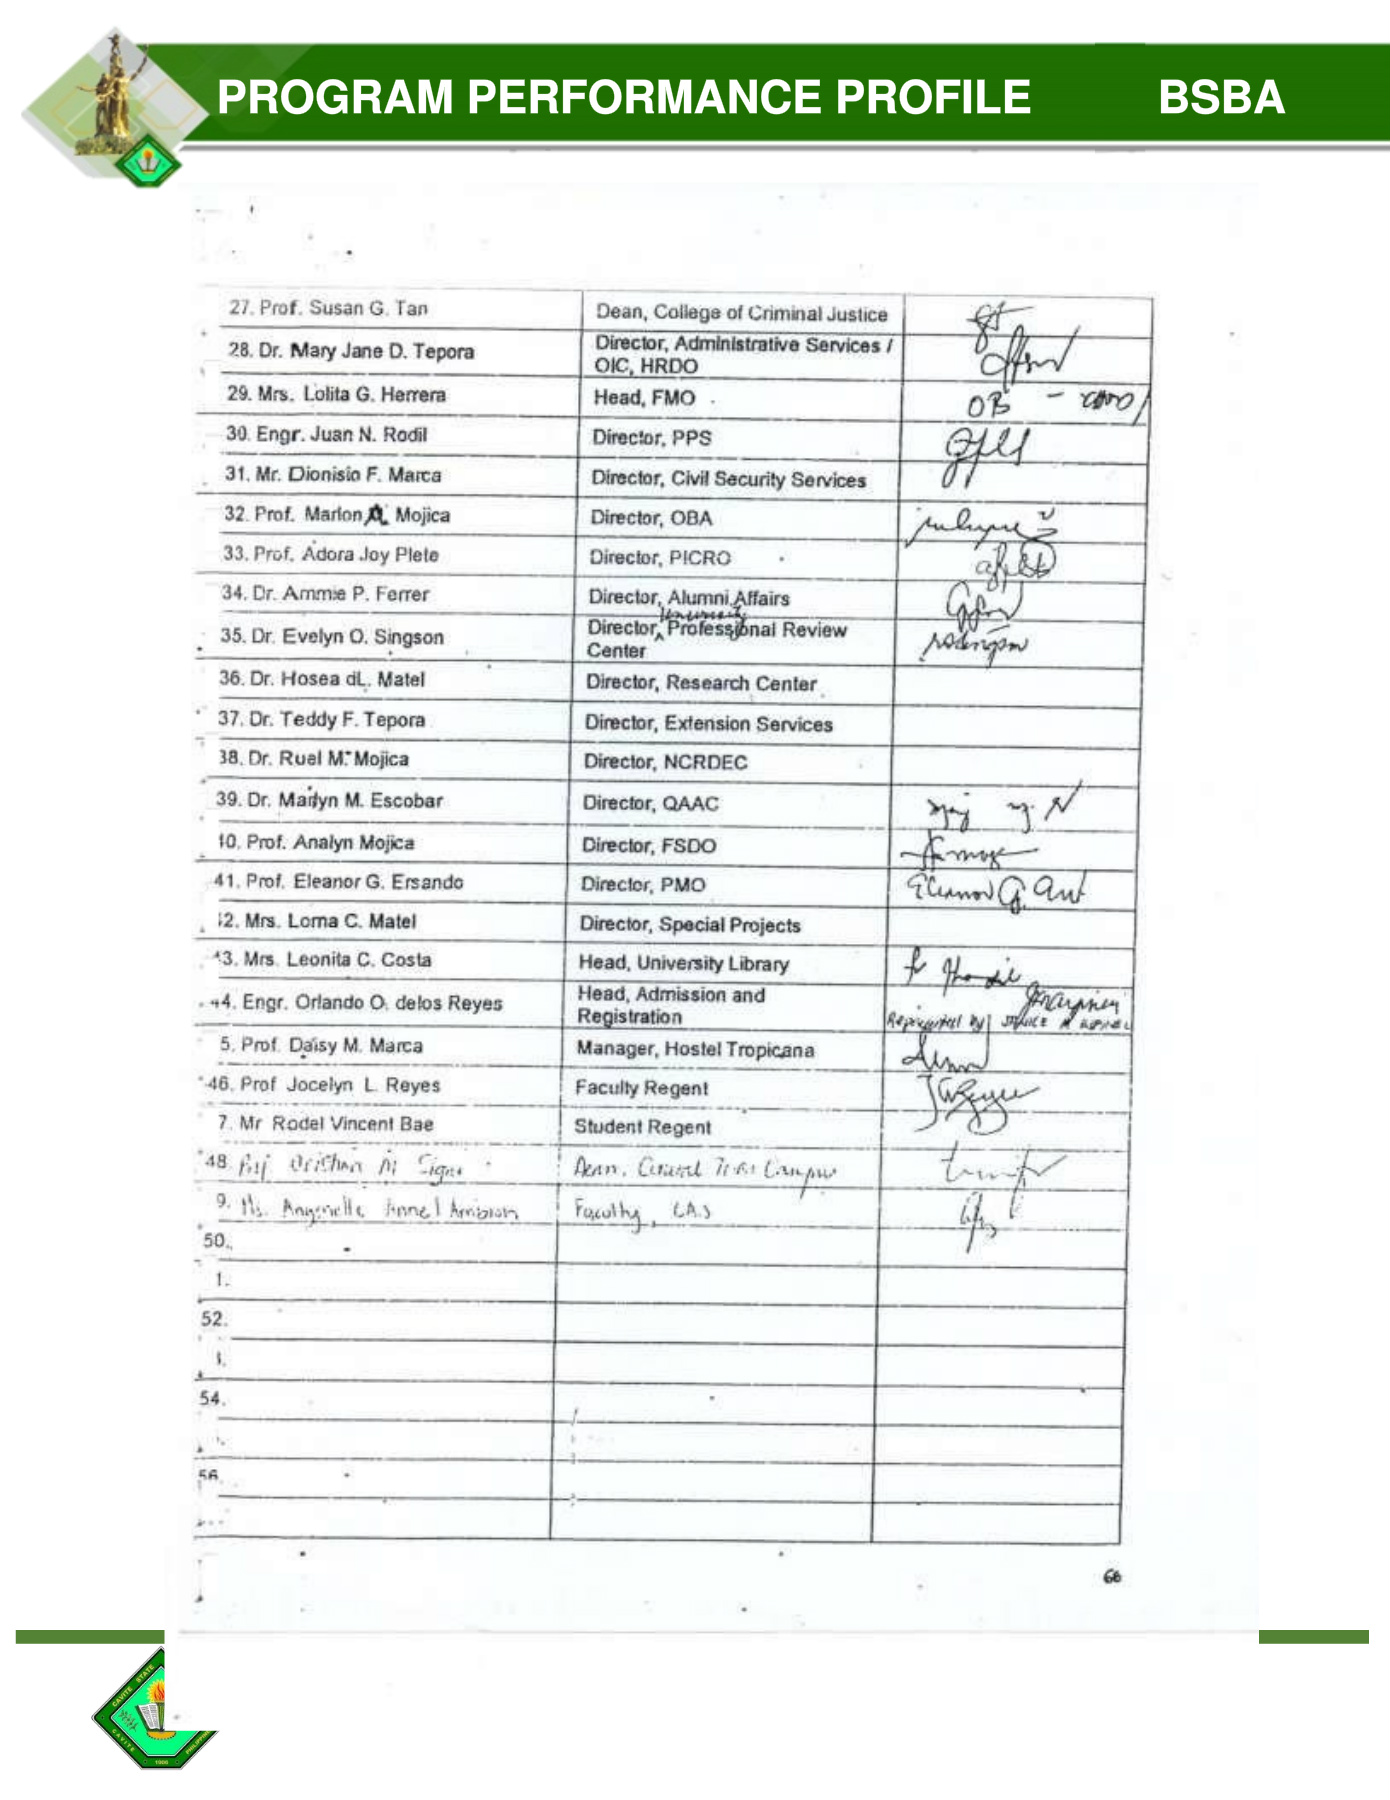 PROGRAM PERFORMANCE PROFILE BSBA
27. Prof. Susan G. Tan Dean, College of Criminal Justice
28. Dr. Mary Jane D. Tepora Director, Administrative Services /
OIC, HRDO
29. Mrs. Lolita G. Herrera Head, FMO OB -
30. Engr. Juan N. Rodil Director, PPS
31. Mr. Dionisio F. Marca Director, Civil Security Services
32. Prof. Marlon A. Mojica Director, OBA
33. Prof. Adora Joy Plete Director, PICRO
34. Dr. Ammie P. Ferrer Director, Alumni Affairs
University
35. Dr. Evelyn O. Singson Director, Professional Review
Center
36. Dr. Hosea dL. Matel Director, Research Center
37. Dr. Teddy F. Tepora Director, Extension Services
38. Dr. Ruel M. Mojica Director, NCRDEC
39. Dr. Marlyn M. Escobar Director, QAAC
40. Prof. Analyn Mojica Director, FSDO
41. Prof. Eleanor G. Ersando Director, PMO Eleanor G.
42. Mrs. Lorna C. Matel Director, Special Projects
43. Mrs. Leonita C. Costa Head, University Library
44. Engr. Orlando O. delos Reyes Head, Admission and
Registration Represented by
5. Prof. Daisy M. Marca Manager, Hostel Tropicana
46. Prof Jocelyn L. Reyes Faculty Regent
7. Mr Rodel Vincent Bae Student Regent
48. Prof Cristian M Dean, Campus
9. Ms. Annel Ambion Faculty, CAS
50.
1.
52.
54.
56.
66
CAVITE STATE
CAVITE PHILIPPINES
1906